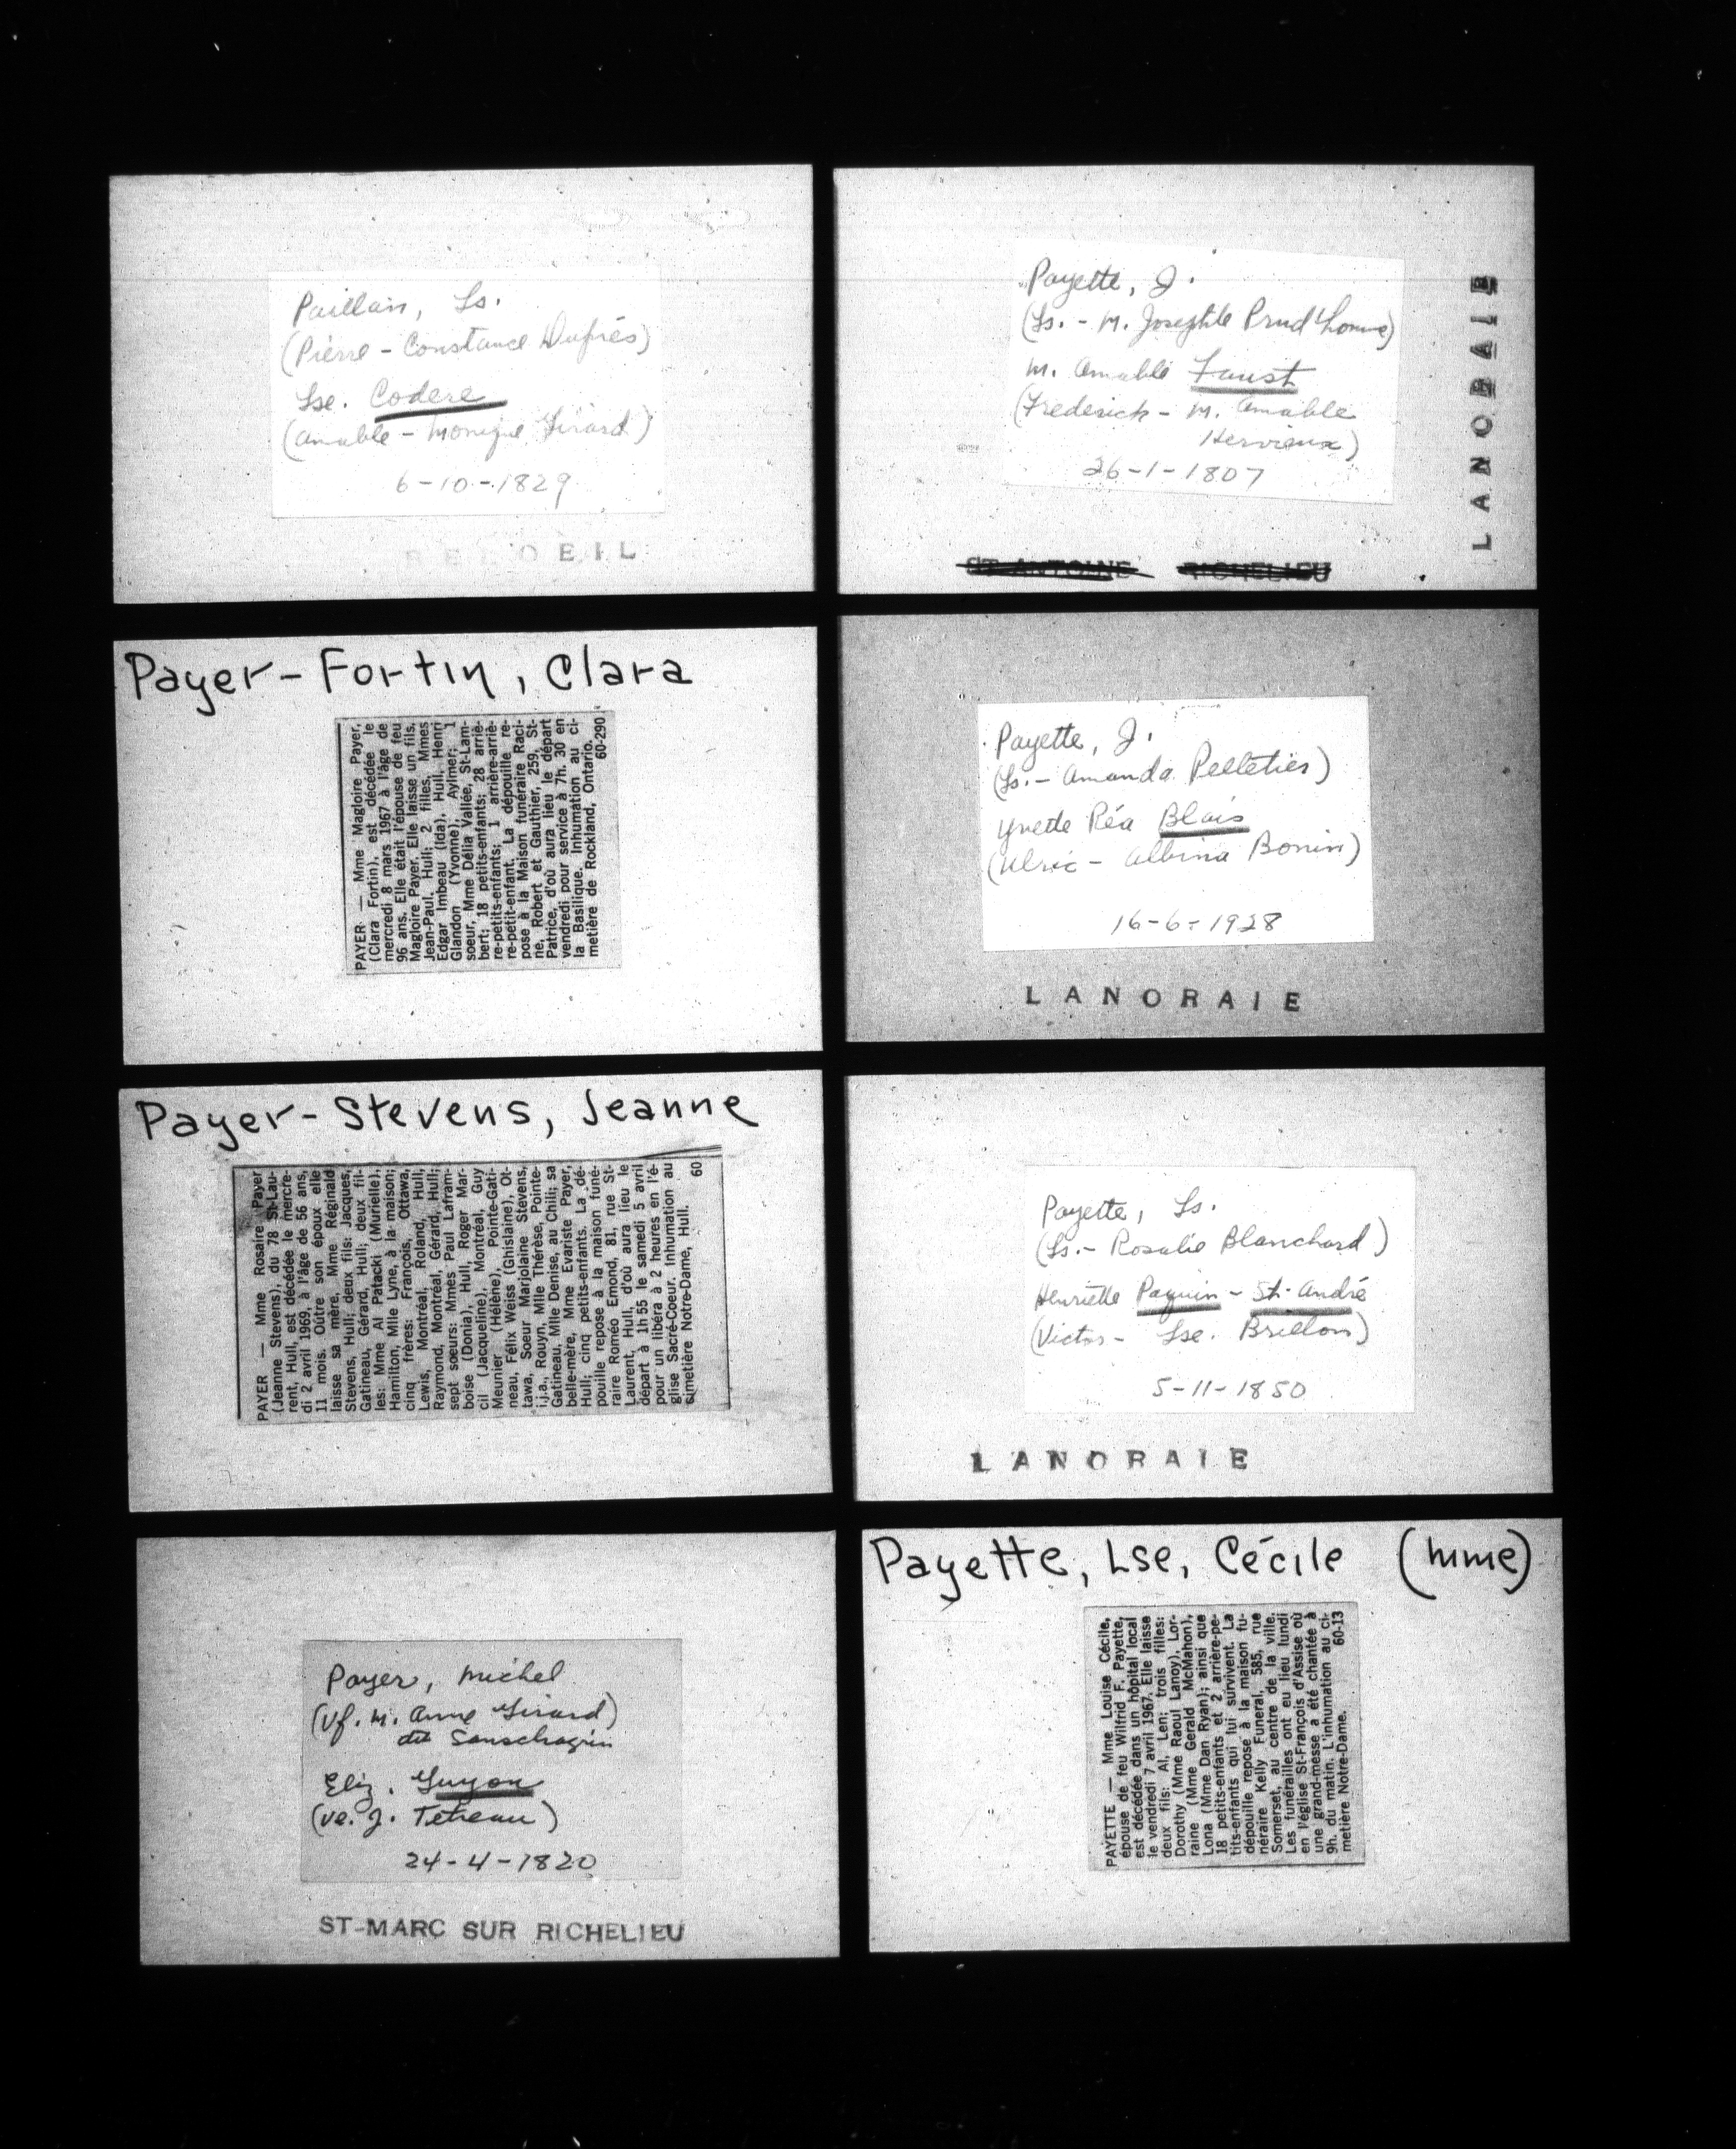 Paillan, Ls.
(Pierre - Constance Duprés)
Lse. Codere
(Amable - Monique Girard)
6-10-1829
BELOEIL
Payer-Fortin, Clara
PAYER — Mme Magloire Payer,
(Clara Fortin), est décédée le
mercredi 8 mars 1967 à l'âge de
96 ans. Elle était l'épouse de feu
Magloire Payer. Elle laisse un fils,
Jean-Paul, Hull; 2 filles, Mmes
Edgar Imbeau (Ida), Hull, Henri
Glandon (Yvonne), Aylmer; 1
soeur, Mme Délia Vallée, St-Lam-
bert; 18 petits-enfants; 28 arriè-
re-petits-enfants; 1 arrière-arriè-
re-petit-enfant. La dépouille re-
pose à la Maison funéraire Raci-
ne, Robert et Gauthier, 259, St-
Patrice, d'où aura lieu le départ
vendredi pour service à 7h. 30 en
la Basilique. Inhumation au ci-
metière de Rockland, Ontario.
60-290
Payer-Stevens, Jeanne
PAYER — Mme Rosaire Payer
(Jeanne Stevens), du 78 St-Lau-
rent, Hull, est décédée le mercre-
di 2 avril 1969, à l'âge de 56 ans,
11 mois. Outre son époux elle
laisse sa mère, Mme Réginald
Stevens, Hull; deux fils: Jacques,
Gatineau, Gérard, Hull; deux fil-
les: Mme Al Patacki (Murielle),
Hamilton, Mlle Lyne, à la maison;
cinq frères: François, Ottawa,
Lewis, Montréal, Roland, Hull,
Raymond, Montréal, Gérard, Hull;
sept soeurs: Mmes Paul Lafram-
boise (Donia), Hull, Roger Mar-
cil (Jacqueline), Montréal, Guy
Meunier (Hélène), Pointe-Gati-
neau, Félix Weiss (Ghislaine), Ot-
tawa, Soeur Marjolaine Stevens,
i.j.a., Rouyn, Mlle Thérèse, Pointe-
Gatineau, Mlle Denise, au Chili; sa
belle-mère, Mme Evariste Payer,
Hull; cinq petits-enfants. La dé-
pouille repose à la maison funé-
raire Roméo Emond, 81, rue St-
Laurent, Hull, d'où aura lieu le
départ à 1h 55 le samedi 5 avril
pour un libéra à 2 heures en l'é-
glise Sacré-Coeur. Inhumation au
cimetière Notre-Dame, Hull.
60
Payer, Michel
(Vf. M. Anne Girard)
dit Sanschagrin
Eliz. Guyon
(Ve. J. Tetreau)
24-4-1820
ST-MARC SUR RICHELIEU
Payette, J.
(Ls. - M. Josephte Prud'homme)
M. Amable Faust
(Frederick - M. Amable
Hervieux)
26-1-1807
ST-ANTOINE RICHELIEU
LANORAIE
Payette, J.
(Ls. - Amanda Pelletier)
Yvette Réa Blais
(Ulric - Albina Bonin)
16-6-1928
LANORAIE
Payette, Ls.
(Ls. - Rosalie Blanchard)
Henriette Paquin - St-André
(Victor - Lse. Brillon)
5-11-1850
LANORAIE
Payette, Lse, Cécile (Mme)
PAYETTE — Mme Louise Cécile,
épouse de feu Wilfrid F. Payette,
est décédée dans un hôpital local
le vendredi 7 avril 1967. Elle laisse
deux fils: Al, Len; trois filles:
Dorothy (Mme Raoul Lanoy), Lor-
raine (Mme Gerald McMahon),
Lona (Mme Dan Ryan); ainsi que
18 petits-enfants et 2 arrière-pe-
tits-enfants qui lui survivent. La
dépouille repose à la maison fu-
néraire Kelly Funeral, 585, rue
Somerset, au centre de la ville.
Les funérailles ont eu lieu lundi
en l'église St-François d'Assise où
une grand-messe a été chantée à
9h. du matin. L'inhumation au ci-
metière Notre-Dame.
60-13